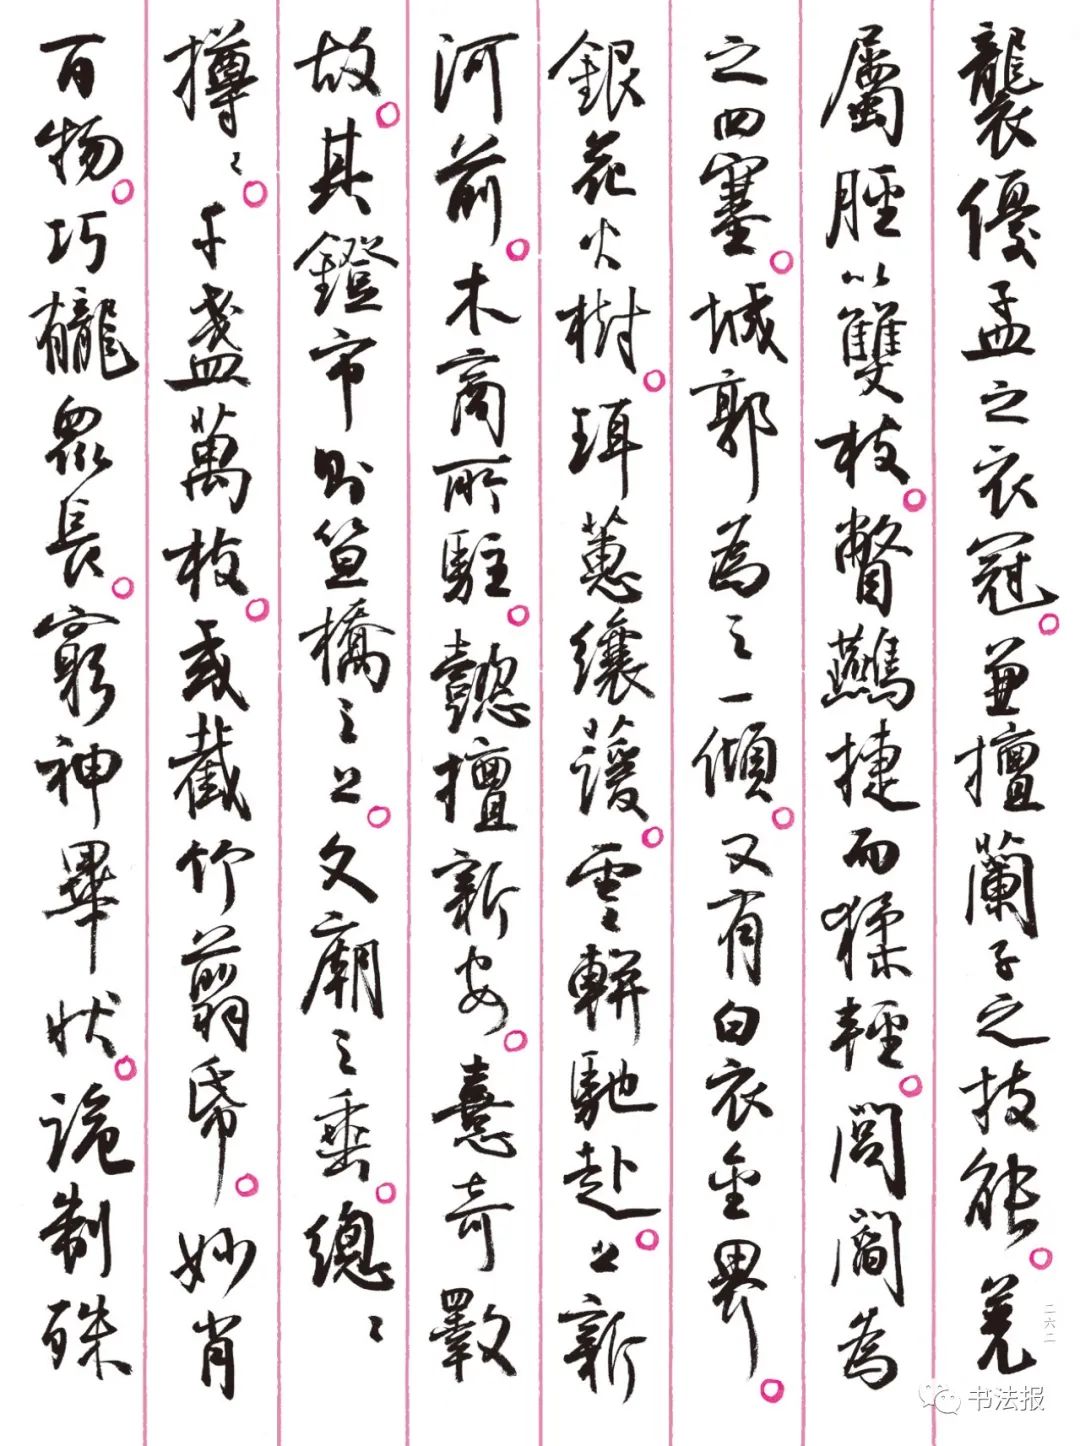 襲優孟之衣冠。兼擅蘭子之技能。羌
屬脛以雙枝。瞥鷰捷而猱輕。閭閻為
之四塞。城郭為之一傾。又有白衣金界。
銀花火樹。珥蕙纕。雲軿馳赴。上新
河前。木商所駐。懿擅新安。憙奇斁
故。其鐙市則笪橋之上。文廟之垂。總〻
撙〻。千盞萬枝。或截竹翦帋。妙肖
百物。巧龓眾長。窮神畢狀。詭制殊
二六二
书法报